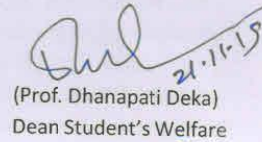 21.11.19
(Prof. Dhanapati Deka)
Dean Student's Welfare